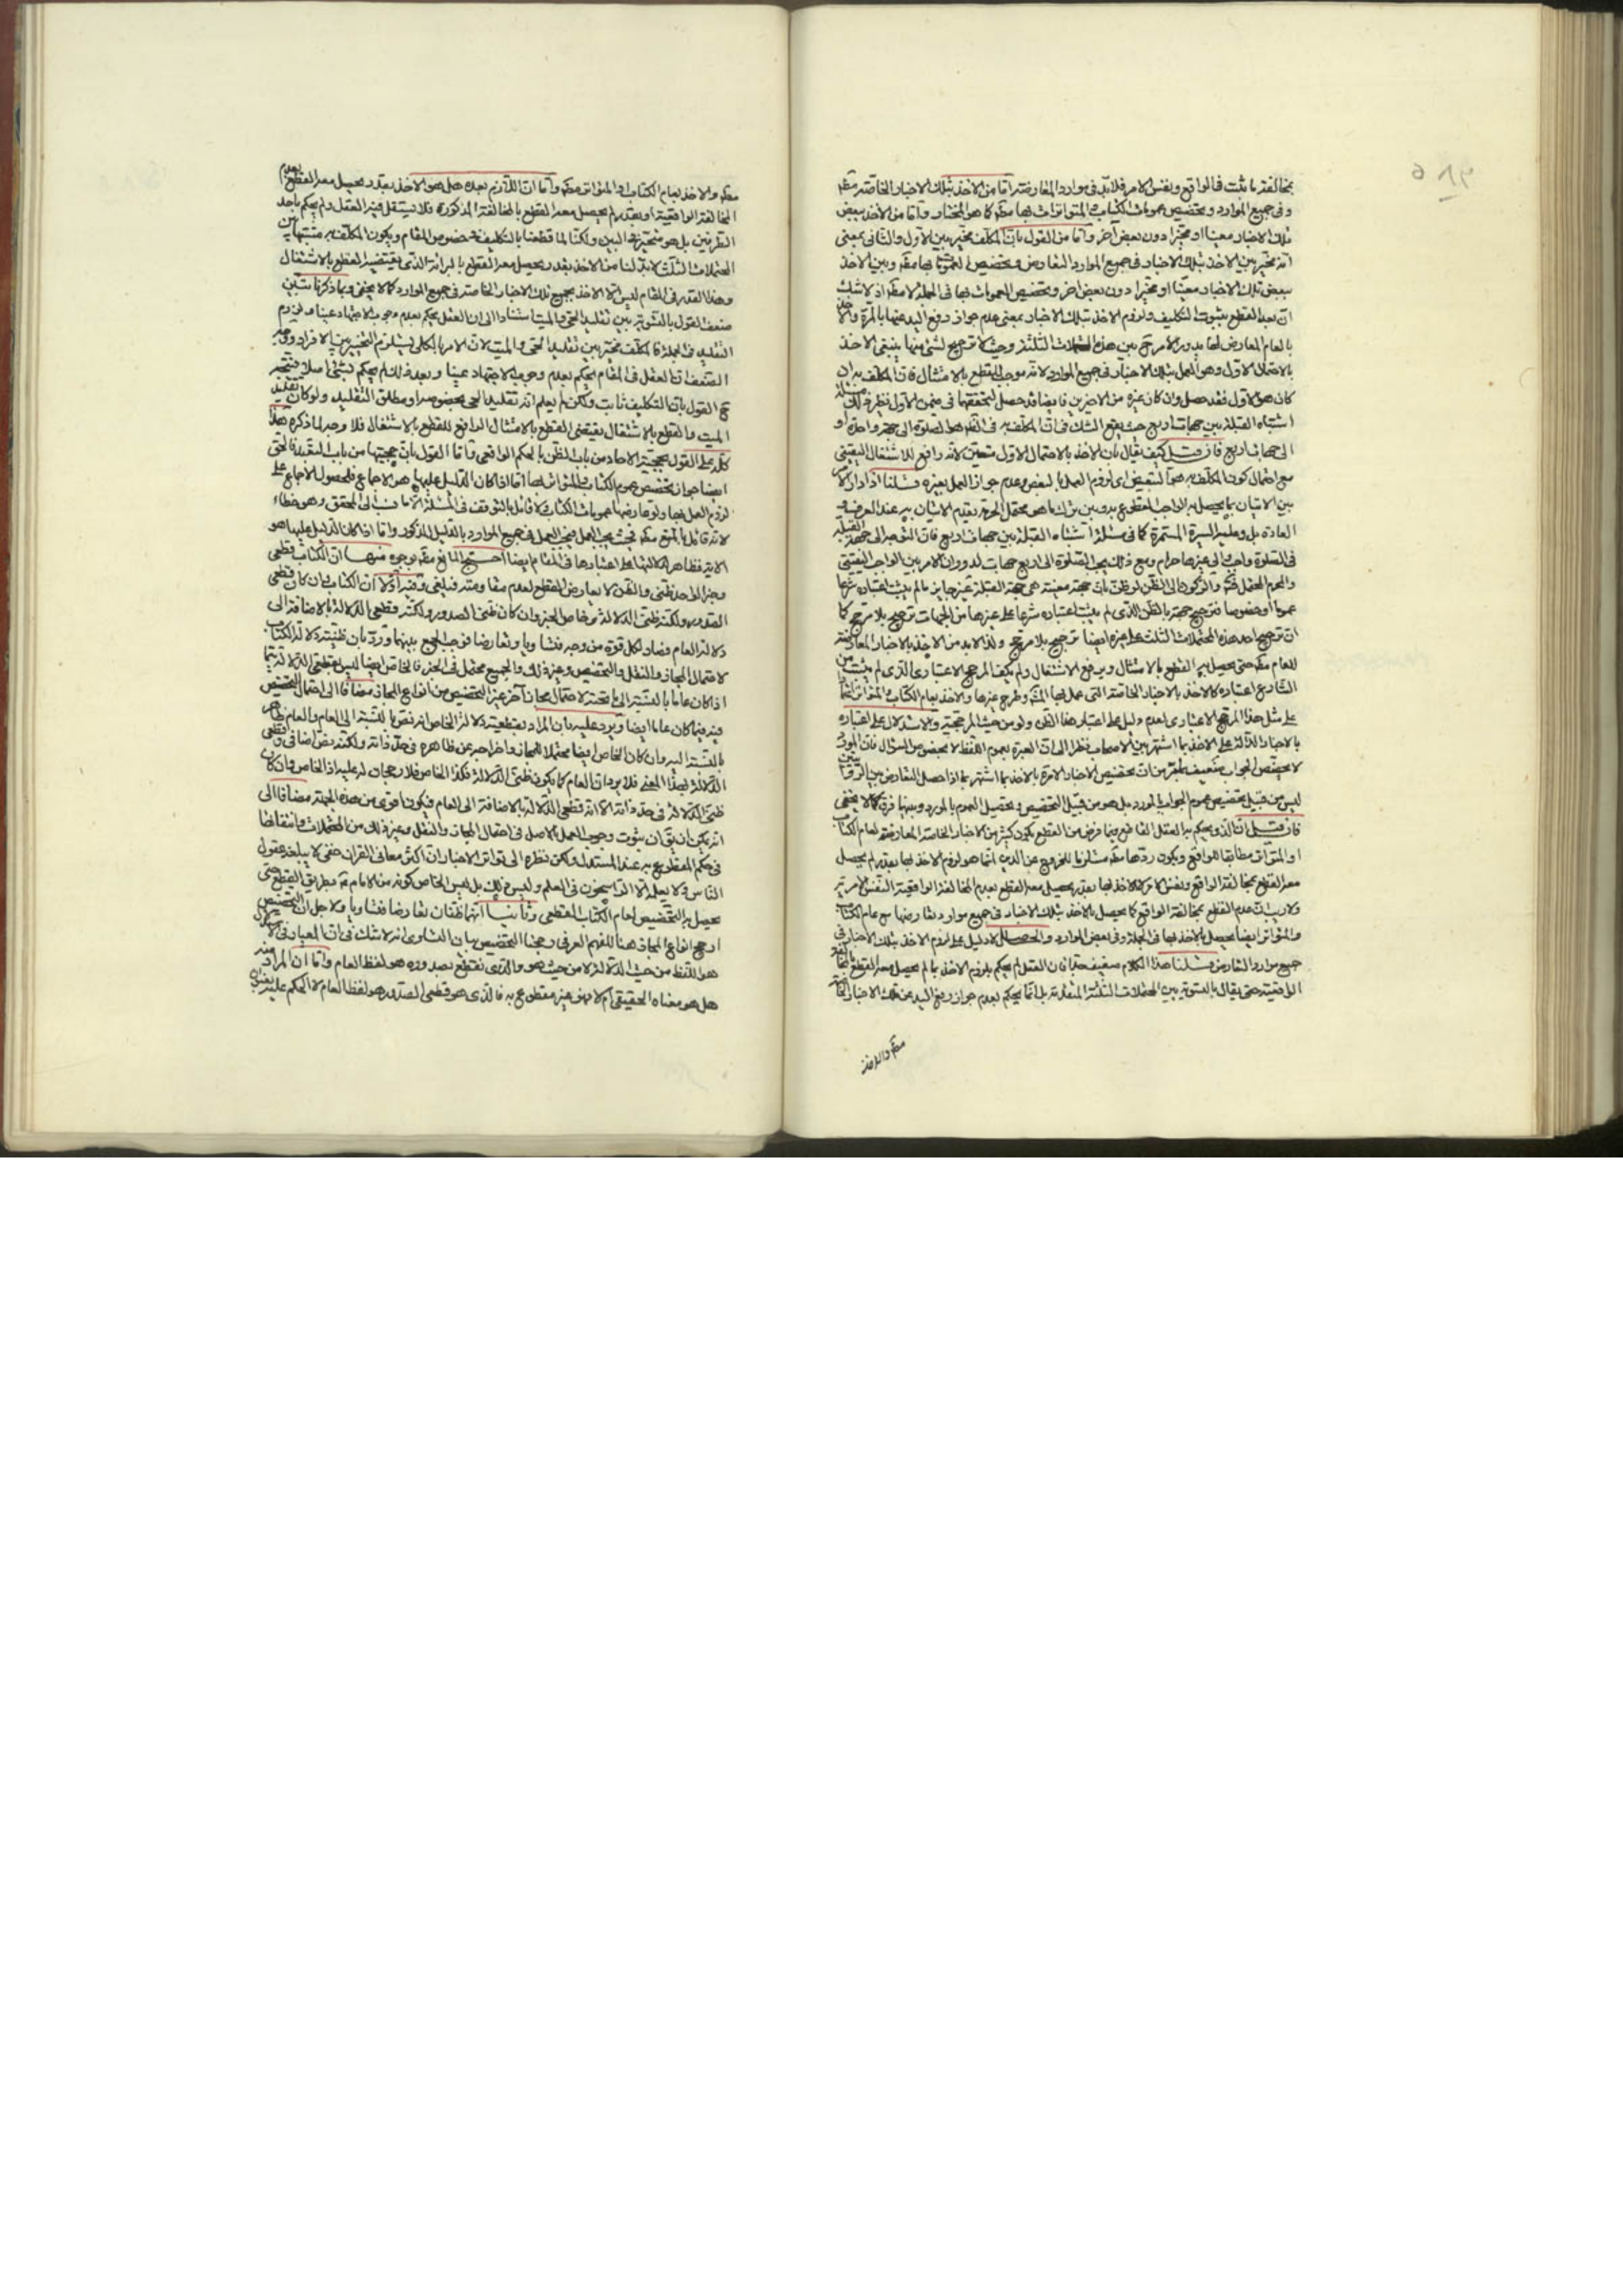 بمخالفته ما ثبت في الواقع ونفس الامر فلابد في موارد المعارضة اما من الاخذ بتلك الاخبار الخاصة مطم
وفي جميع الموارد وتخصيص عمومات الكتاب والمتواترات بها مطم كما هو المختار واما من الاخذ ببعض
تلك الاخبار معينا او مخيرا دون بعض آخر واما من القول بان المكلف مخير بين الاول والثاني بمعنى
انه مخير بين الاخذ بتلك الاخبار في جميع الموارد التعارض وتخصيص العموم بها مطم وبين الاخذ
ببعض تلك الاخبار معينا او مخيرا دون بعض آخر وتخصيص العمومات بها في الجملة لا مطم اذ لا شك
ان بعد القطع بثبوت التكليف ولزوم الاخذ بتلك الاخبار بمعنى عدم جواز رفع اليد عنها بالمرة والاخذ
بالعام المعارض لها يدور الامر بين هذه المحتملات الثلثة وحيث لا ترجيح لشئ منها ينبغي الاخذ
بالاحتمال الاول وهو العمل بتلك الاخبار في جميع الموارد لانه موجب للقطع بالامتثال فان المكلف به ان
كان هو الاول فقد حصل وان كان غيره من الاخيرين فايضا قد حصل لتحققهما في ضمن الاول نظير ذلك مسئلة
اشتباه القبلة بين جهات اربع حيث يقع الشك في ان المكلف به في هو الصلوة الى جهة واحدة او
الى جهات اربع فان قيل كيف يقال بان الاخذ بالاحتمال الاول متعين لانه رافع للاشتغال اليقيني
مع احتمال كون المكلف به هو التبعيض اى لزوم العمل بالبعض وعدم جواز العمل بغيره قلنا اذا دار الامر
بين الاتيان بما يحصل به الواجب القطعي وبين ترك ما هو محتمل الحرمة يقدم الاتيان به عند العرف و
العادة بل وعليه السيرة المستمرة كما في مسئلة اشتباه القبلة بين جهات اربع فان التوجه الى جهة القبلة
في الصلوة واجب والى غيرها حرام ومع ذلك يجب الصلوة الى اربع جهات لدوران الامر بين الواجب اليقيني
والحرام المحتمل والركون الى الظن لو ظن بان جهة معينة هي جهة القبلة غير جايز ما لم يثبت اعتباره شرعا
عموما او خصوصا فترجيح جهة بالظن الذى لم يثبت اعتباره شرعا على غيرها من الجهات ترجيح بلا مرجح كما
ان ترجيح احد هذه المحتملات الثلث على غيره ايضا ترجيح بلا مرجح ولذا لابد من الاخذ بالاخبار المعارضة
للعام مطم حتى يحصل به القطع بالامتثال ويرفع الاشتغال ولم يكف المرجح الاعتبارى الذى لم يثبت من
الشارع اعتباره كالاخذ بالاخبار الخاصة التى عمل بها وطرح غيرها والاخذ بعام الكتاب والمتواتر
على مثل هذا المرجح الاعتبارى لعدم دليل على اعتبار هذا الظن ولو من حيث المرجحية والاستدلال على اعتباره
بالاخبار الدالة على الاخذ بما اشتهر بين الاصحاب نظرا الى ان العبرة بعموم اللفظ لا بخصوص السؤال فان المورد
لا يخصص الجواب ضعيف من ان تخصيص الاخبار الآمرة بالاخذ بما اشتهر بما اذا حصل التعارض بين الروايتين
ليس من قبيل تخصيص عموم الجواب بالمورد بل هو من قبيل التخصيص وتحصيل العموم بالمورد وبينهما فرق كما لا يخفى
فان قيل ان الذى يحكم به العقل القاطع فيما فرض من القطع بكون كثير من الاخبار الخاصة المعارضة لعام الكتاب
او المتواتر مطابقا للواقع ويكون ردها مطم مستلزما للخروج عن الدين انما هو لزوم الاخذ بها بقدر لم يحصل
معه القطع بمخالفة الواقع ونفس الامر لا الاخذ بها بقدر يحصل معه القطع بعدم المخالفة الواقعية النفس الامرية
ولا ريب ان عدم القطع بمخالفة الواقع كما يحصل بالاخذ بتلك الاخبار في جميع موارد تعارضها مع عام الكتاب
والمتواتر ايضا يحصل بالاخذ بها في الجملة وفي بعض الموارد والحاصل لا دليل على لزوم الاخذ بتلك الاخبار في
جميع موارد التعارض قلنا هذا الكلام ضعيف جدا فان العقل لم يحكم بلزوم الاخذ بما لم يحصل معه القطع بالمخالفة
الواقعية حتى يقال بالتسوية بين المحتملات الثلثة المتقدمة بل انما يحكم بعدم جواز رفع اليد عن تلك الاخبار الخاصة
مطم والاخذ
مطم والاخذ بعام الكتاب او المتواتر مطم واما ان اللازم بعده هل هو الاخذ بقدر يحصل معه القطع بعدم
المخالفة الواقعية او بقدر لم يحصل معه القطع بالمخالفة المذكورة فلا يستقل فيه العقل ولم يحكم باحد
الطرفين بل هو متحير في البين ولكنا لما قطعنا بالتكليف في خصوص المقام ويكون المكلف به مشتبها بين
المحتملات الثلث لابد لنا من الاخذ بقدر يحصل معه القطع بالبرائة الذى يقتضيه القطع بالاشتغال
وهذا القدر في المقام ليس الا الاخذ بجميع تلك الاخبار الخاصة في جميع الموارد كما لا يخفى وبما ذكرنا تبين
ضعف القول بالتسوية بين تقليد الحي والميت استنادا الى ان العقل يحكم بعدم وجوب الاجتهاد عينا ولزوم
التقليد في الجملة فالمكلف مخير بين تقليد الحي والميت لان الامر بالكلي يستلزم التخيير بين الافراد ووجه
الضعف ان العقل في المقام يحكم بعدم وجوب الاجتهاد عينا وبعد ذلك لم يحكم بشئ اصلا فيتجه
ح القول بان التكليف ثابت ولكن لم يعلم انه تقليد الحي بخصوصه او مطلق التقليد ولو كان تقليد
الميت والقطع بالاشتغال يقتضى القطع بالامتثال الرافع للقطع بالاشتغال فلا وجه لما ذكره هذا
كله على القول بحجية الآحاد من باب الظن بالحكم الواقعي واما القول بان حجيتها من باب التعبد فالحق
ايضا جواز تخصيص عموم الكتاب والمتواتر بها اما اذا كان الدليل عليها هو الاجماع فلحصول الاجماع على
لزوم العمل بها ولو تعارضها عمومات الكتاب لا قائل بالتوقف في المسئلة الا ما نسب الى المحقق وهو خطاء
لانه قائل بالمنع مطم فحيث يجب العمل فيجب العمل في جميع الموارد بالدليل المذكور واما اذا كان الدليل عليها هو
الآية فظاهر دلالتها على اعتبارها في المقام ايضا احتج المانع مطم بوجوه منها ان الكتاب قطعي
وخبر الواحد ظني والظن لا يعارض القطع لعدم مقاومته فيلغى وفيه اولا ان الكتاب وان كان قطعي
الصدور ولكنه ظني الدلالة وخاص الخبر وان كان ظني الصدور ولكنه قطعي الدلالة بالاضافة الى
دلالة العام فصار لكل قوة من وجه فتساويا وتعارضا فوجب الجمع بينهما ورد بان ظنية دلالة الكتاب
لاحتمال المجاز والنقل والتخصيص وغير ذلك والجميع محتمل في الخبر فالخاص ايضا ليس بقطعي الدلالة سيما
اذا كان عاما بالنسبة الى ما تحته لاحتمال مجاز آخر غير التخصيص من انواع المجاز مضافا الى احتمال التخصيص
فيه فيما كان عاما ايضا ويرد عليه بان المراد بقطعية دلالة الخاص انه نص بالنسبة الى العام والعام ظاهر
بالنسبة اليه وان كان الخاص ايضا محتملا للمجاز واخراجه عن ظاهره في حد ذاته ولكنه نص اضافي وقطعي
الدلالة بهذا المعنى فلا يرد ان العام كما يكون ظني الدلالة فكذا الخاص فلا رجحان له عليه اذ الخاص وان كان
ظني الدلالة في حد ذاته الا انه قطعي الدلالة بالاضافة الى العام فيكون اقوى من هذه الجهة مضافا الى
انه يمكن ان يق ان ثبوت وجوب العمل بالاصل في احتمال المجاز والنقل وغير ذلك من المحتملات وانتفائها
في حكم المقطوع به عند المستدل ولكن نظره الى تواتر الاخبار ان اكثر معانى القران خفي لا يبلغه عقول
الناس ولا يعلمه الا الراسخون في العلم وليس كذلك بل ليس الخاص كونه من الامام ع بطريق القطع حتى
يحصل به التخصيص لعام الكتاب القطعي وثانيا انهما ظنان تعارضا فتساويا ولاجل ان التخصيص
ارجح انواع المجاز هنا للفهم العرفي رجحنا التخصيص بيان التساوى انه لا شك في ان المعيار في
هو اللفظ من حيث الدلالة لا من حيث هو هو والذى نقطع بصدوره هو لفظ العام واما ان المراد منه
هل هو معناه الحقيقي ام لا فهو غير مقطوع به فالذى هو قطعي الصدور هو لفظ العام لا الحكم عليه